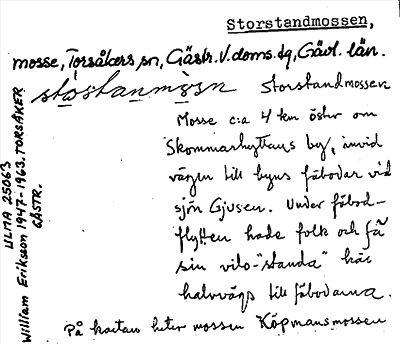 Storstandmossen,
mosse, Torsåkers sn, Gästr. V. doms. tg, Gävl. län.
storstanmɔsn Storstandmossen
Mosse c:a 4 km öster om
Skommarhyttans by, invid
vägen till byns fäbodar vid
sjön Gjusen. Under fäbod-
flytten hade folk och fä
sin vilo-"standa" här
halvvägs till fäbodarna.
På kartan heter mossen Köpmansmossen
ULMA 25063
William Eriksson 1947-1963. TORSÅKER
GÄSTR.